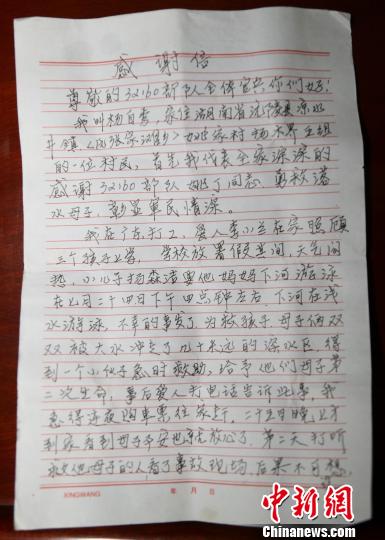 感谢信
尊敬的32160部队全体官兵你们好！
我叫杨自香，家住湖南省沅陵县凉水
井镇
的一位村民，首先我代表全家深深的
感谢32160部队姚丁同志，勇救落
水母子，彰显军民情深。
我在广东打工，爱人李小兰在家照顾
三个孩子上学，学校放署假其间，天气闷
热，小儿子杨森清要他妈妈下河游泳
在七月二十四日下午四点钟左右，下河在浅
水游泳，不幸的事发了，为救孩子，母子俩双
双被大水冲走了几十米远的深水区，得
到一个小伙子急时救助，给予他们母子第
二次生命，事后爱人打电话告诉此事，我
急得连夜购车票往家赶，二十五日晚上才
到家看到母子平安也就放心了，第二天打听
救他母子的人看了事故现场，后果不可想
XINGWANG
年 月 日
中新网
Chinanews.com